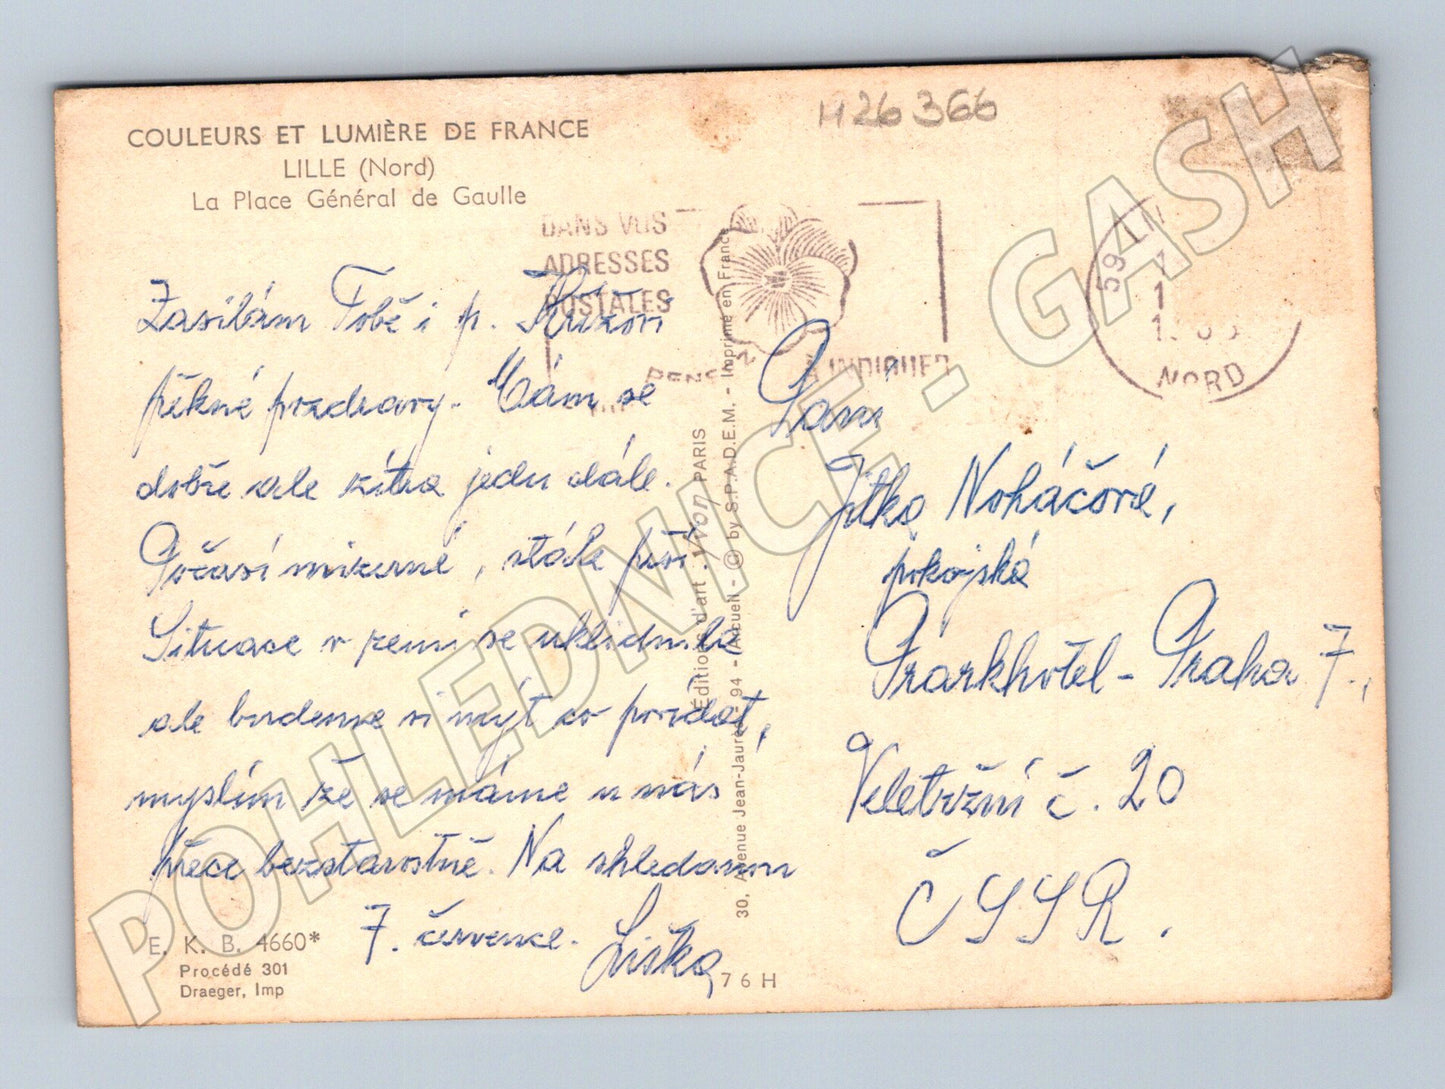 COULEURS ET LUMIÈRE DE FRANCE
LILLE (Nord)
La Place Général de Gaulle
H26366
DANS VOS
ADRESSES
POSTALES
À INDIQUER
NORD
Zasílám Tobě i p.
pěkné pozdravy. Mám se
dobře ale zítra jedu dále.
Počasí mizerné, stále prší.
Situace v zemi se uklidnila
ale budeme si mýt co povídat,
myslím že se máme u nás
přece bezstarostně. Na shledanou
7. července.
Liška
Paní
Jitka Noháčová,
pokojská
Parkhotel - Praha 7.,
Veletržní č. 20
ČSSR.
Éditions d'art Yvon PARIS
30, Avenue Jean-Jaurès - 94 - Arcueil - © by S.P.A.D.E.M. - Imprimé en France
E. K. B. 4660*
Procédé 301
Draeger, Imp
76 H
POHLEDNICE - GASH